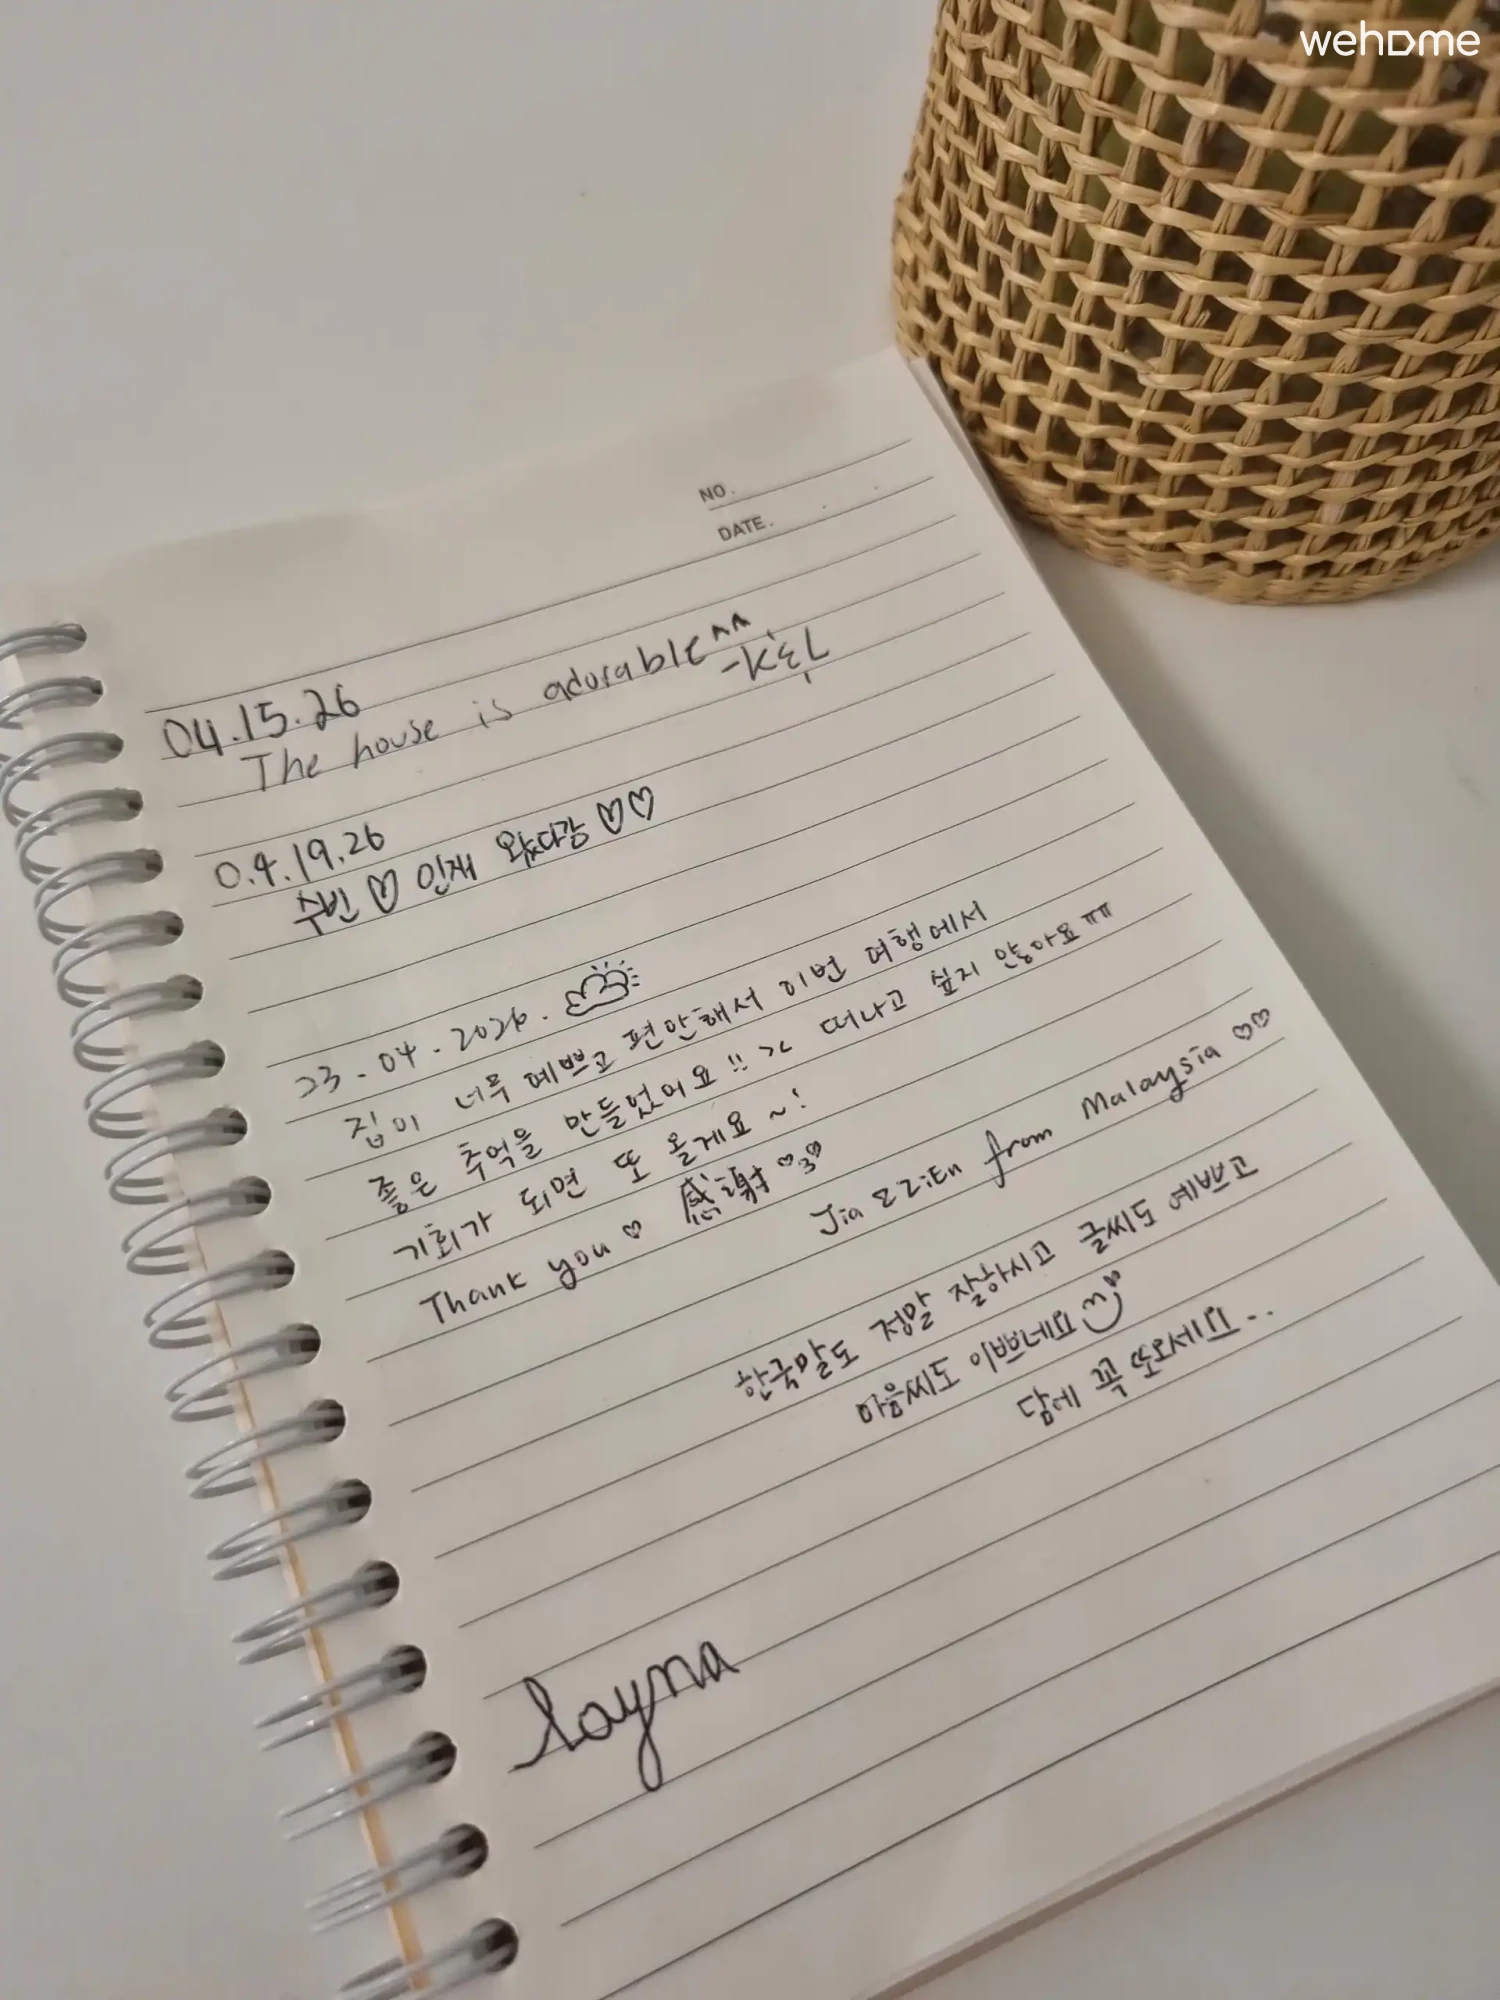 wehome
NO.
DATE.
04.15.26
The house is adorable^^
0.4.19.26
수빈 ♡ 인재 왔다감 ♡♡
23.04.2026.
집이 너무 예쁘고 편안해서 이번 여행에서
좋은 추억을 만들었어요!! >< 떠나고 싶지 않아요ㅠㅠ
기회가 되면 또 올게요~!
Thank you ♡ 感謝 ♡3♡
Jia & ZiEn from Malaysia ♡♡
한국말도 정말 잘하시고 글씨도 예쁘고
마음씨도 이쁘네요
담에 꼭 또오세요..